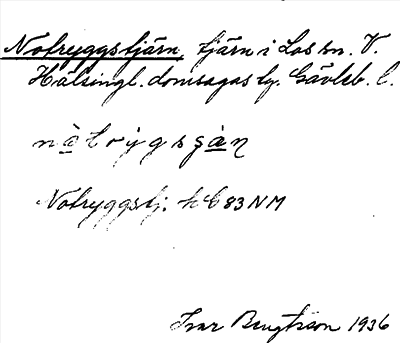 Notryggstjärn, tjärn i Los sn. V.
Hälsingl. domsagas tg. Gävleb. l.
nåtrygsʂàn
Notryggstj. kb 83 NM
Ivar Bengtsson 1936